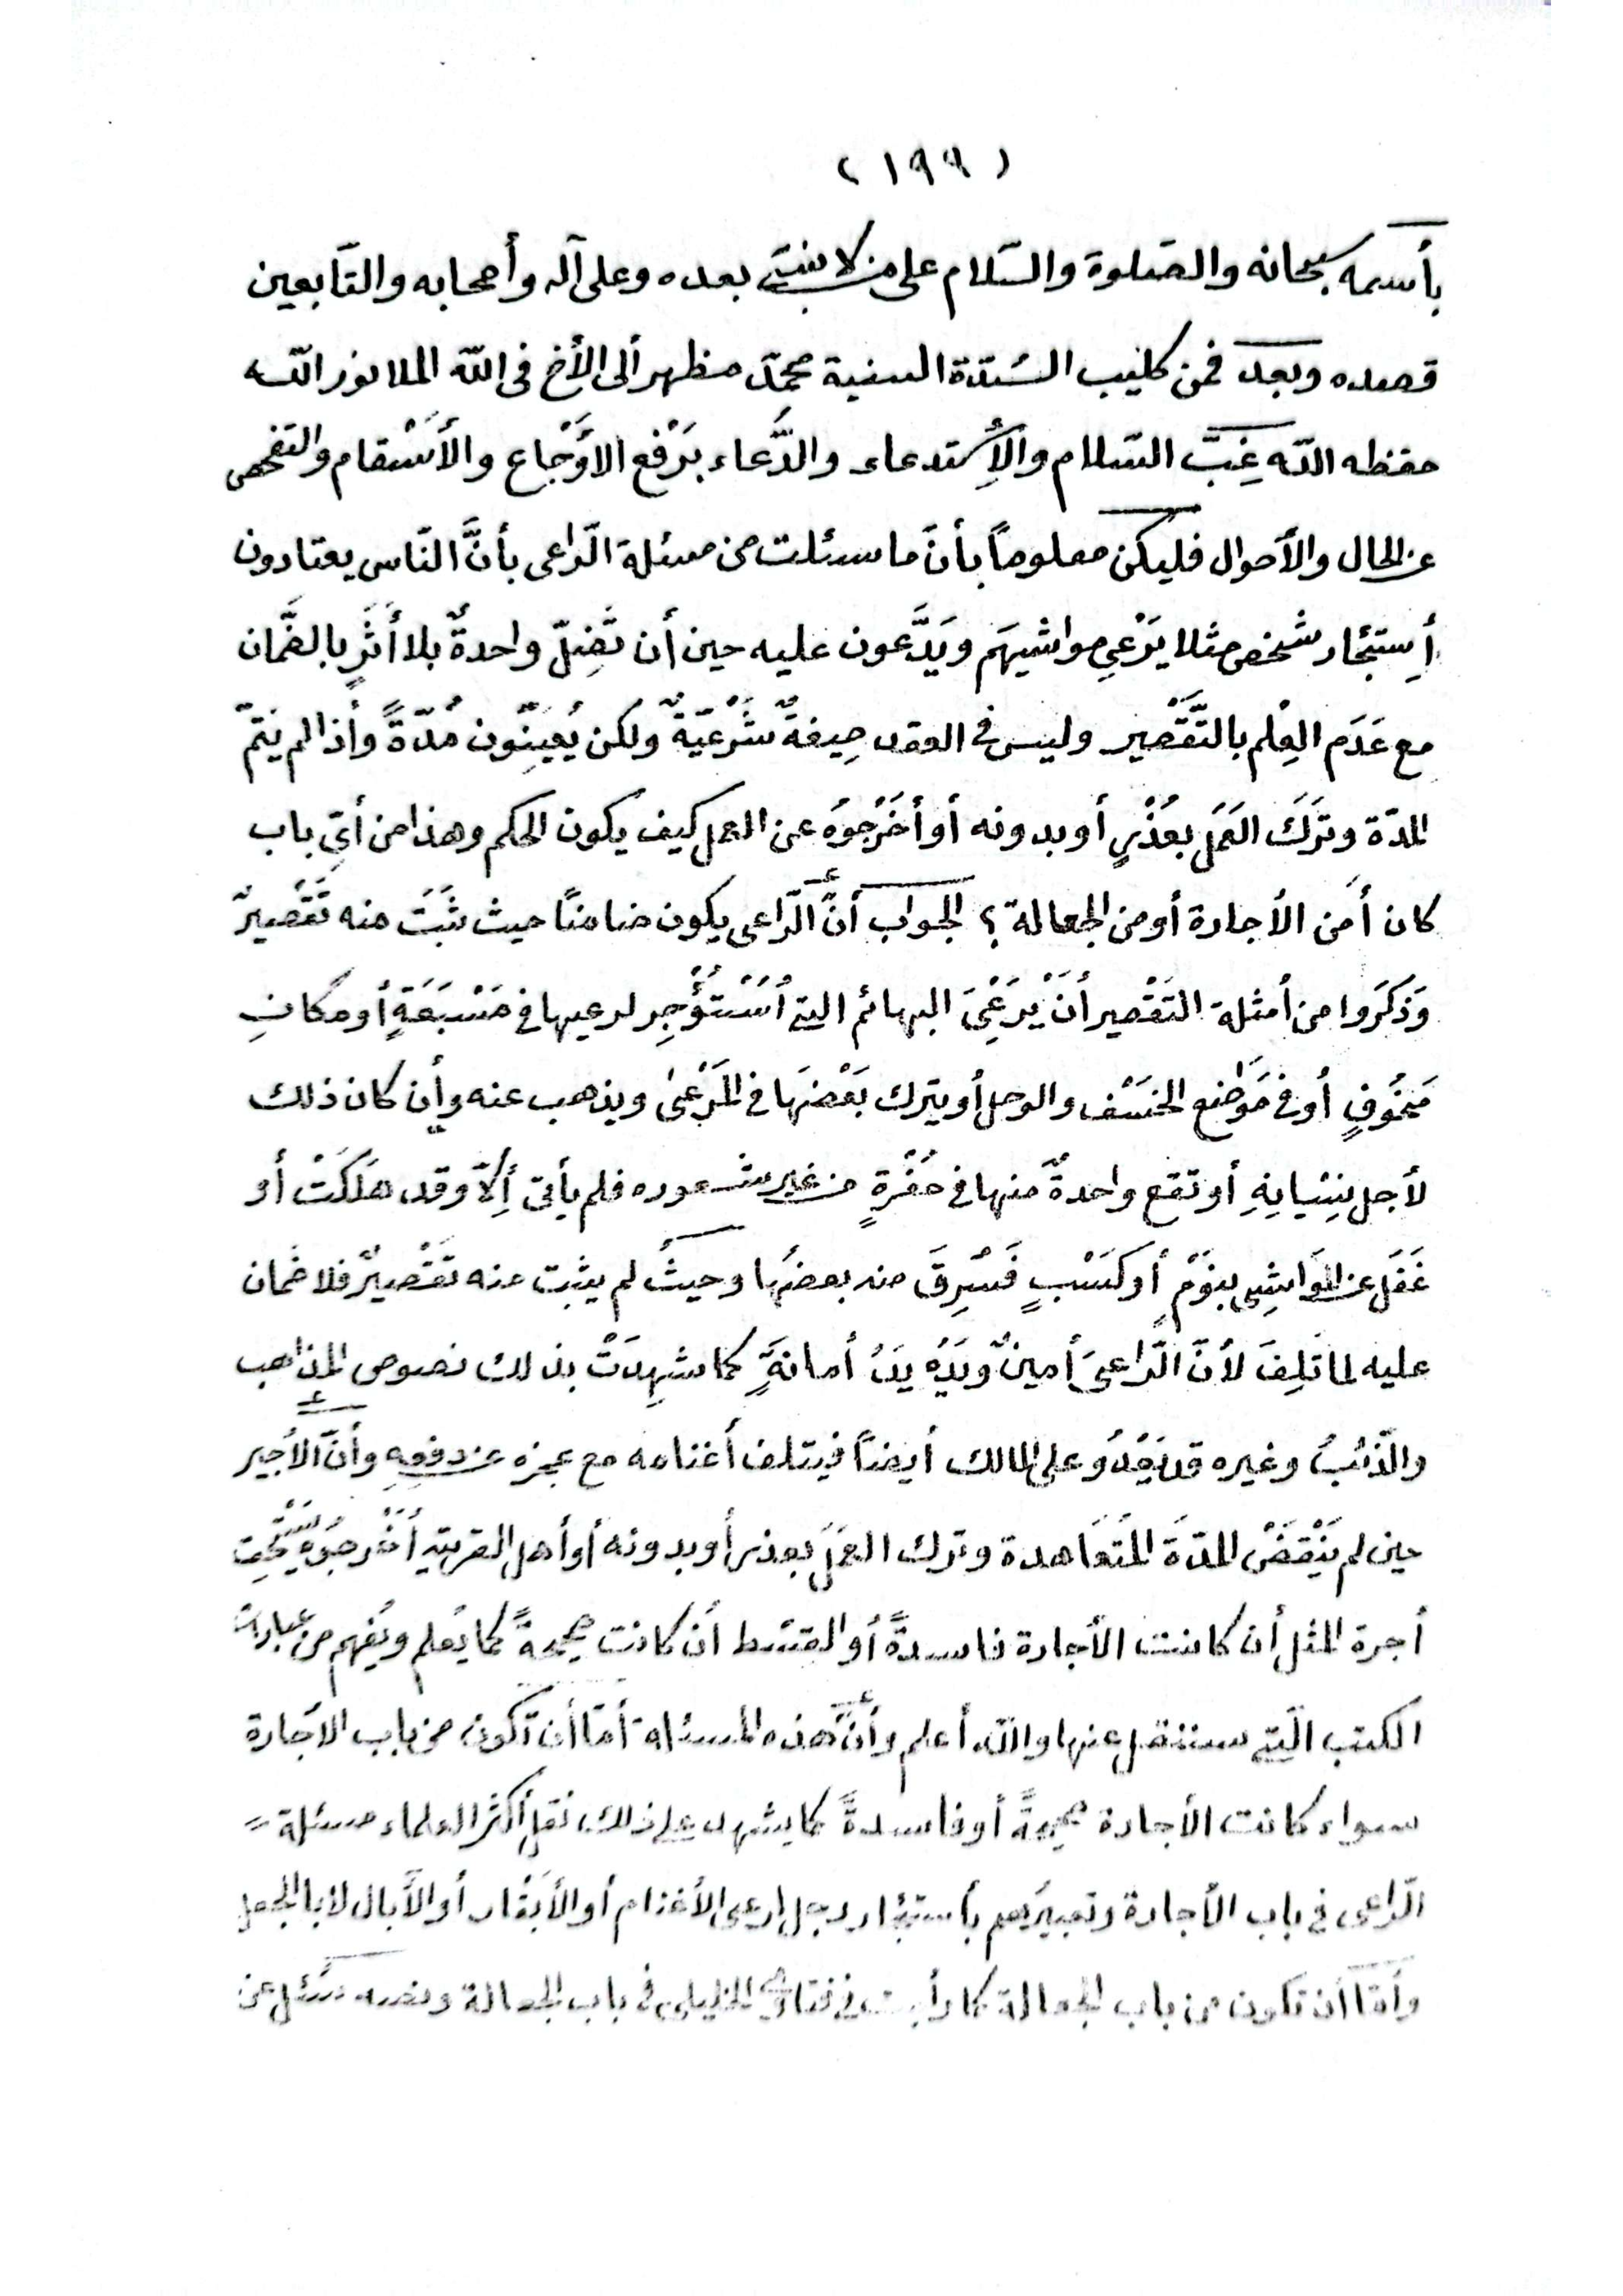 (١٩٩)
بأسمه سبحانه والصّلوة والسّلام على من لا نبيّ بعده وعلى آله وأصحابه والتّابعين
قصده وبعد فمن كليب السّدّة السنية محمّد مظهر ألى الأخ فى اللّه الملا نور اللّه
حفظه اللّه غِبَّ السّلام والأِستدعاء والدُّعاء بَرَفْع الأَوْجَاع والأَسْقام والتفحص
عن الحال والأحوال فليكن معلوماً بأنّ ما سئلت من مسئلة الرّاعى بأنَّ النّاس يعتادون
أِستِئجار شخص مثلا يَرْعىِ مواشيهَم ويَدَّعون عليه حين أن تَضِلّ واحدةٌ بلا أَثَرٍ بالضَّمان
مع عَدَم العِلْم بالتَّقْصير وليس فى العقد صِيغةٌ شَرْعيّةٌ ولكن يُعيِّنون مُدّةً وأذا لم يتمّ
المدّة وتَرَكَ العَمَل بعُذْرٍ أو بدونه أو أخْرَجوُه عن العمل كيف يكون الحكم وهذا من أىّ باب
كان أَمن الأجارة أو من الجعالة؟ الجواب أنّ الرّاعى يكون ضامنًا حيث ثَبَتَ منه تَقْصيرٌ
وَذَكَرَوا من أمثلة التَقْصير أنْ يَرْعَىَ البهائم التى أُسْتُؤْجِر لرعيها فى مَسْبَعَةٍ أو مكانٍ
مَخُوفٍ أو فى مَوْضِع الخَسْف والوحل أو يترك بَعْضَهَا فى المَرْعىٰ ويذهب عنه وأِن كان ذلك
لأجل نِسْيانِهِ أو تقع واحدةٌ منها فى حُفْرةٍ من غير شعوره فلم يأتى أِلاّ وقد هَلَكَتْ أو
غَفَل عن المَوَاشِى بنَوْمٍ أو كَسْبٍ فَسُرِقَ منه بعضُها وحيثُ لم يثبت عنه تقْصيرٌ فلا ضمان
عليه لما تَلِفَ لأنّ الرّاعىَ أمينٌ ويَدُه يَدُ أمانةٍ كما شهِدَتْ بذلك نصوص المذاهب
والذّئبُ وغيره قد يَعْدُو على المالك أيضاً فيتلف أغنامه مع عجزه عن دفعهِ وأنّ الأَجير
حين لم يَنْقَضْ المدّةَ المُتَعَاهدة وترك العَمَلَ بعذر أو بدونه أو أهل القرية أخْرجوُه يَسْتحِق
أجرة المثل أن كانت الأجارة فاسدةً أو القسْط أن كانت صحيحةً كما يُعلم ويُفهم من عبارت
الكتب الّتى سننقل عنها واللّه أعلم وأنّ هذه المسئلة أمّا أن تكون من باب الأجارة
سواء كانت الأجارة صحيحةً أو فاسدةً كما يشهد على ذلك نقل أكثر العلماء مسئلة =
الرّاعى فى باب الأجارة وتعبيرُهم بأستئجار رجل لرعى الأغنام أو الأَبْقار أو الأبال لا بالجعل
وأمّا أن تكون من باب الجعالة كما رأيت فى فتاوى الخليلى فى باب الجعالة ونصه سُئل عن